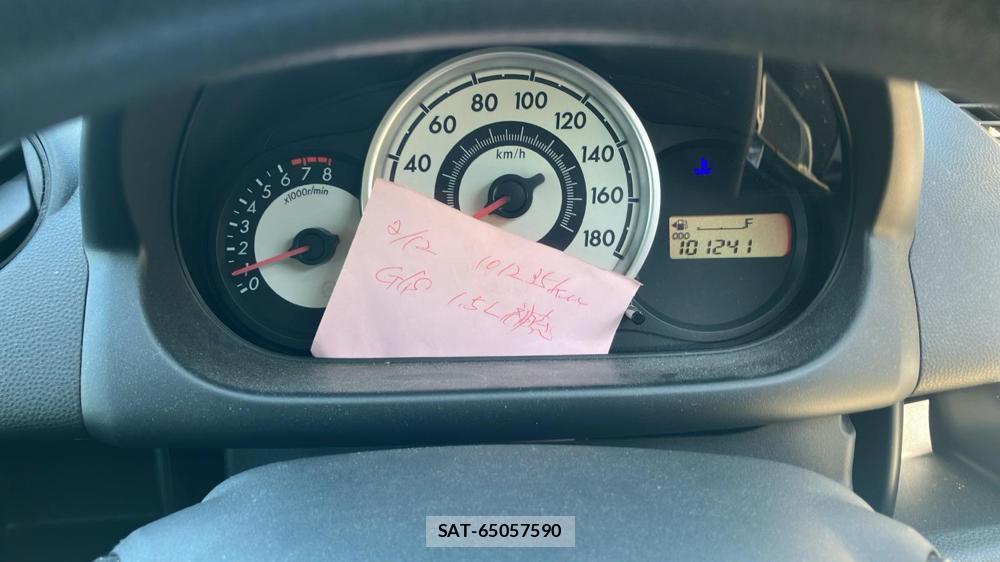 80 100
60 120
40 140
160
180
km/h
0 1 2 3 4 5 6 7 8
x1000r/min
F
ODO
101241
2/12 101235km
G/S 1.5L
SAT-65057590